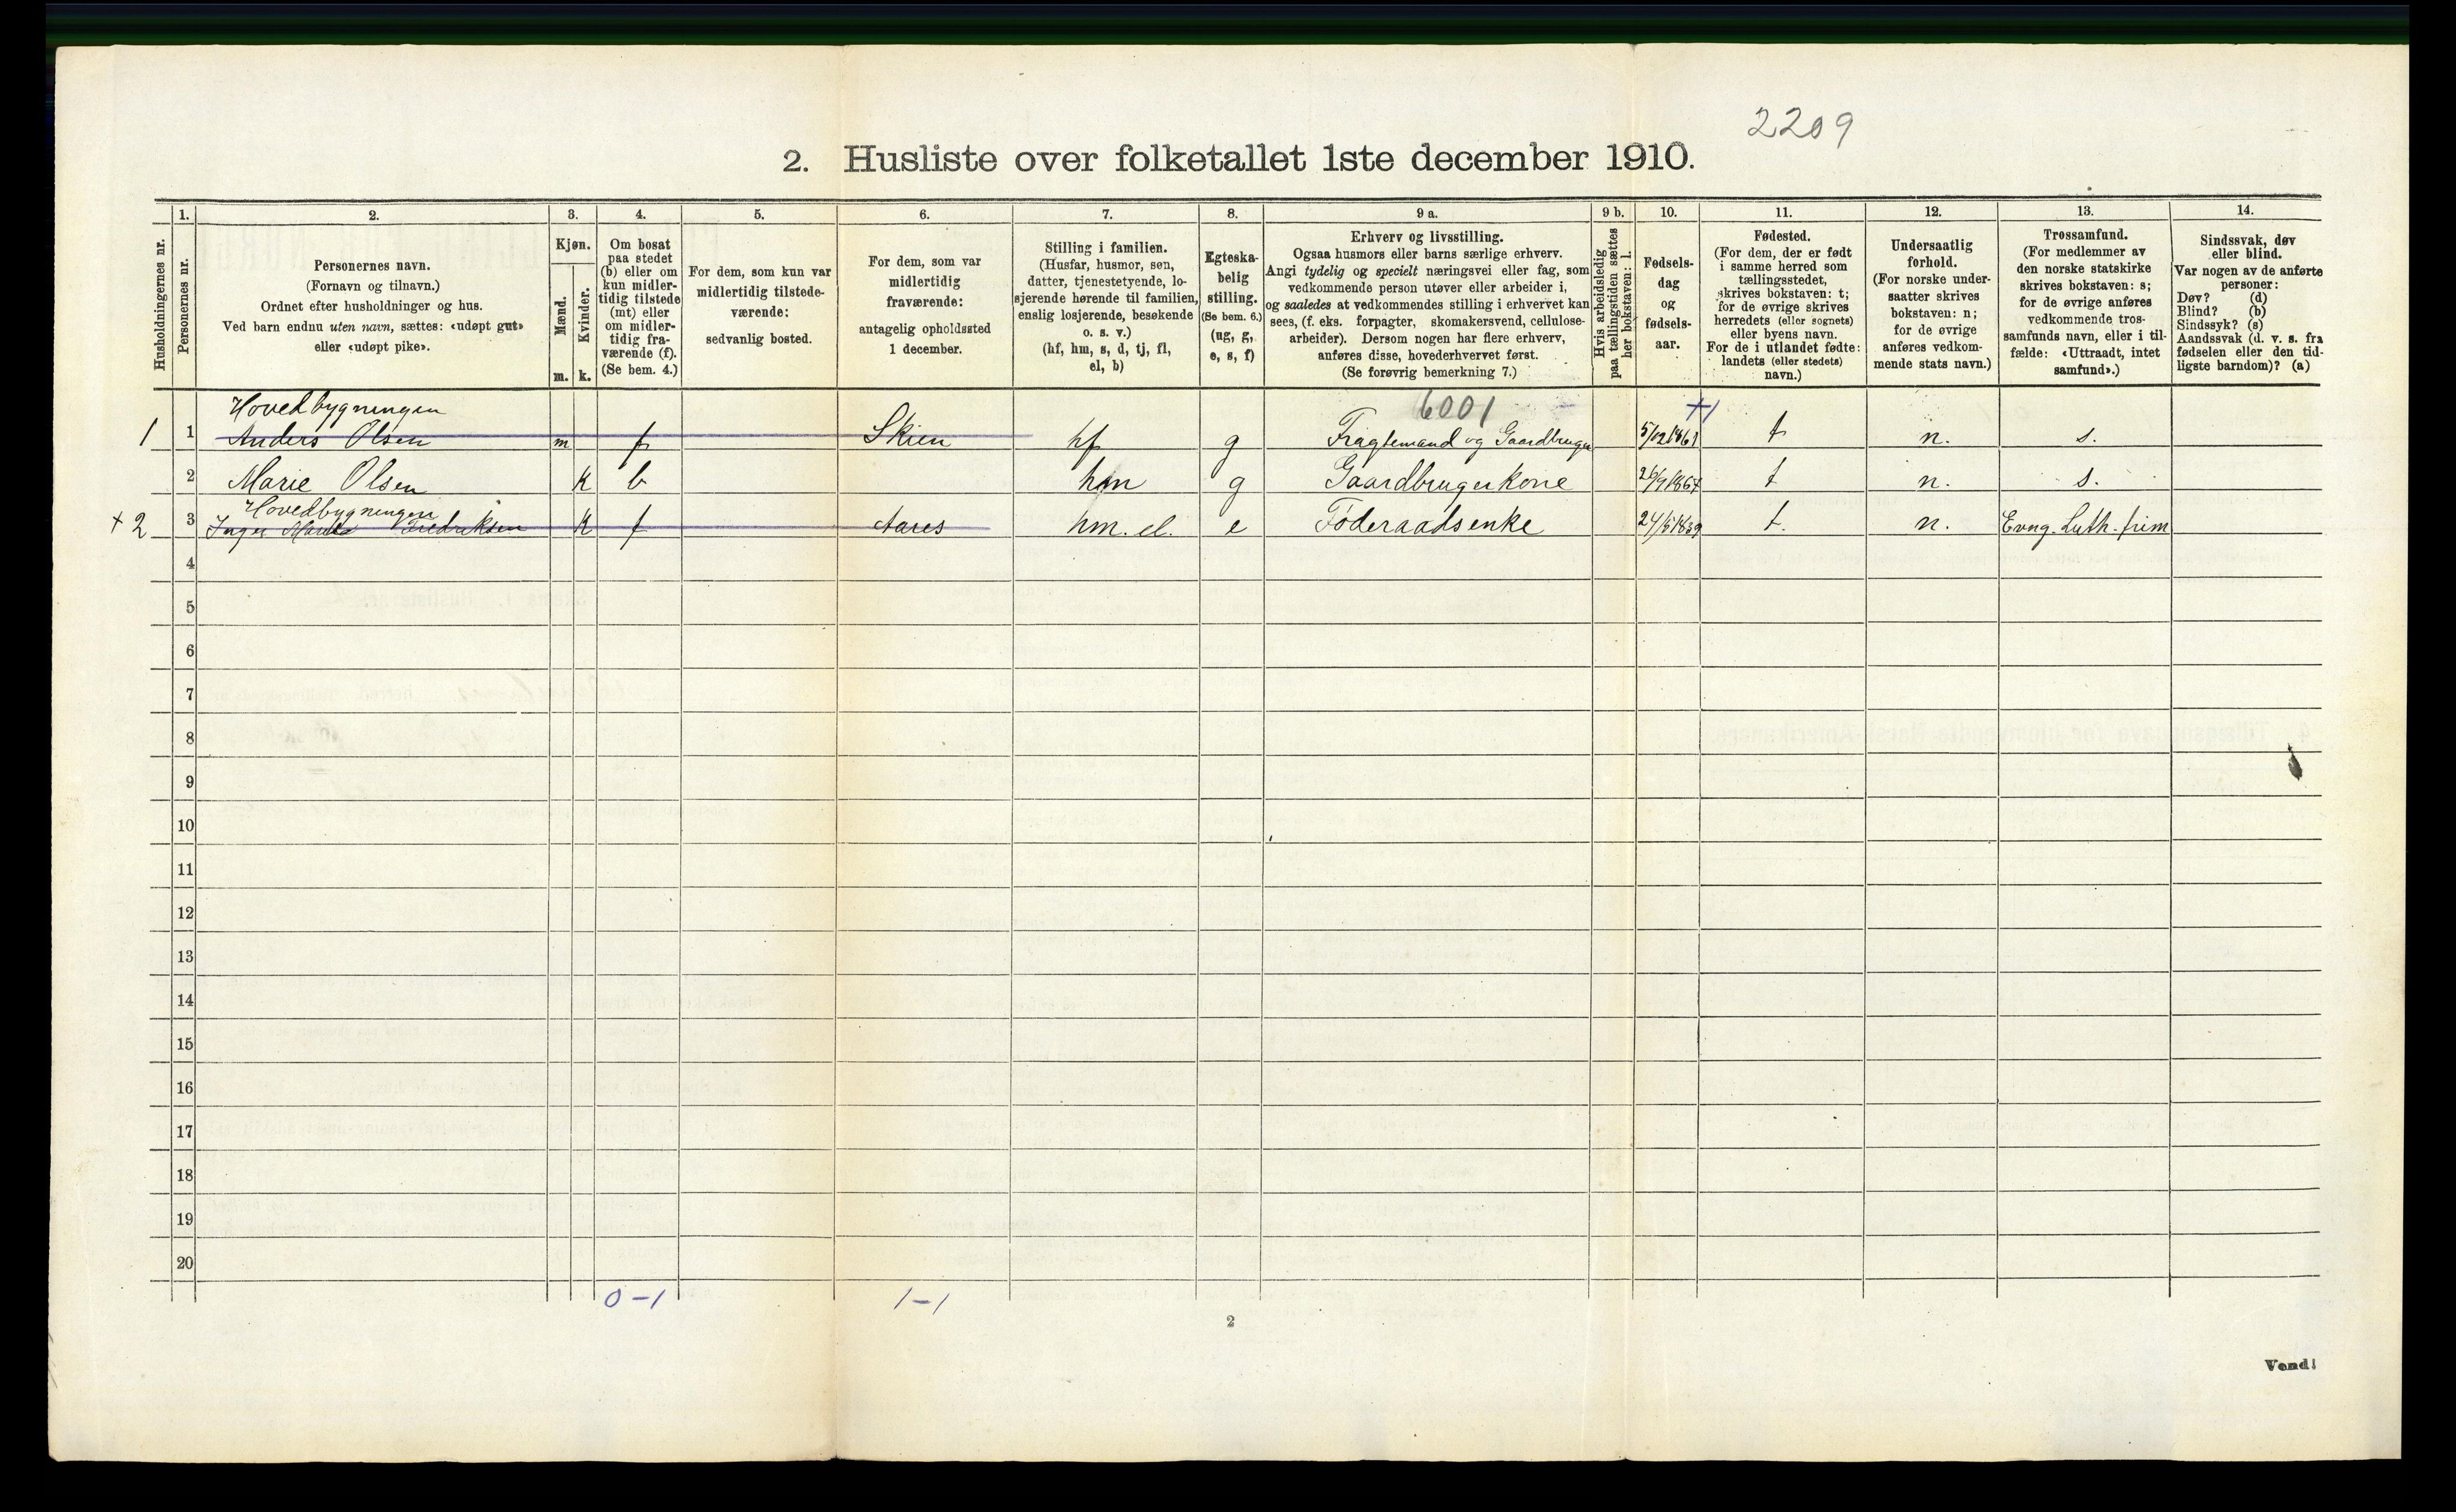 2209
2. Husliste over folketallet 1ste december 1910.
Husholdningernes nr.
1.
Personernes nr.
2.
Personernes navn.
(Fornavn og tilnavn.)
Ordnet efter husholdninger og hus.
Ved barn endnu uten navn, sættes: «udøpt gut»
eller «udøpt pike».
3.
Kjøn.
Mænd.
m.
Kvinder.
k.
4.
Om bosat
paa stedet
(b) eller om
kun midler-
tidig tilstede
(mt) eller
om midler-
tidig fra-
værende (f).
(Se bem. 4.)
5.
For dem, som kun var
midlertidig tilstede-
værende:
sedvanlig bosted.
6.
For dem, som var
midlertidig
fraværende:
antagelig opholdssted
1 december.
7.
Stilling i familien.
(Husfar, husmor, søn,
datter, tjenestetyende, lo-
sjerende hørende til familien,
enslig losjerende, besøkende
o. s. v.)
(hf, hm, s, d, tj, fl,
el, b)
8.
Egteska-
belig
stilling.
(Se bem. 6.)
(ug, g,
e, s, f)
9 a.
Erhverv og livsstilling.
Ogsaa husmors eller barns særlige erhverv.
Angi tydelig og specielt næringsvei eller fag, som
vedkommende person utøver eller arbeider i,
og saaledes at vedkommendes stilling i erhvervet kan
sees, (f. eks. forpagter, skomakersvend, cellulose-
arbeider). Dersom nogen har flere erhverv,
anføres disse, hovederhvervet først.
(Se forøvrig bemerkning 7.)
9 b.
Hvis arbeidsledig
paa tællingstiden sættes
her bokstaven: l.
10.
Fødsels-
dag
og
fødsels-
aar.
11.
Fødested.
(For dem, der er født
i samme herred som
tællingsstedet,
skrives bokstaven: t;
for de øvrige skrives
herredets (eller sognets)
eller byens navn.
For de i utlandet fødte:
landets (eller stedets)
navn.)
12.
Undersaatlig
forhold.
(For norske under-
saatter skrives
bokstaven: n;
for de øvrige
anføres vedkom-
mende stats navn.)
13.
Trossamfund.
(For medlemmer av
den norske statskirke
skrives bokstaven: s;
for de øvrige anføres
vedkommende tros-
samfunds navn, eller i til-
fælde: «Uttraadt, intet
samfund».)
14.
Sindssvak, døv
eller blind.
Var nogen av de anførte
personer:
Døv? (d)
Blind? (b)
Sindssyk? (s)
Aandssvak (d. v. s. fra
fødselen eller den tid-
ligste barndom)? (a)
Hovedbygningen 6001
1 1 Anders Olsen m f Skien hf g Fragtemand og Gaardbruger t n. s.
2 Marie Olsen K b hm g Gaardbrugerkone t n. s.
Hovedbygningen
+ 2 3 Inger Fredriksen K f Aares hm. el. e Føderaadsenke t. n. Evng. Luth. frim
4
5
6
7
8
9
10
11
12
13
14
15
16
17
18
19
20
0-1 1-1
2
Vend!